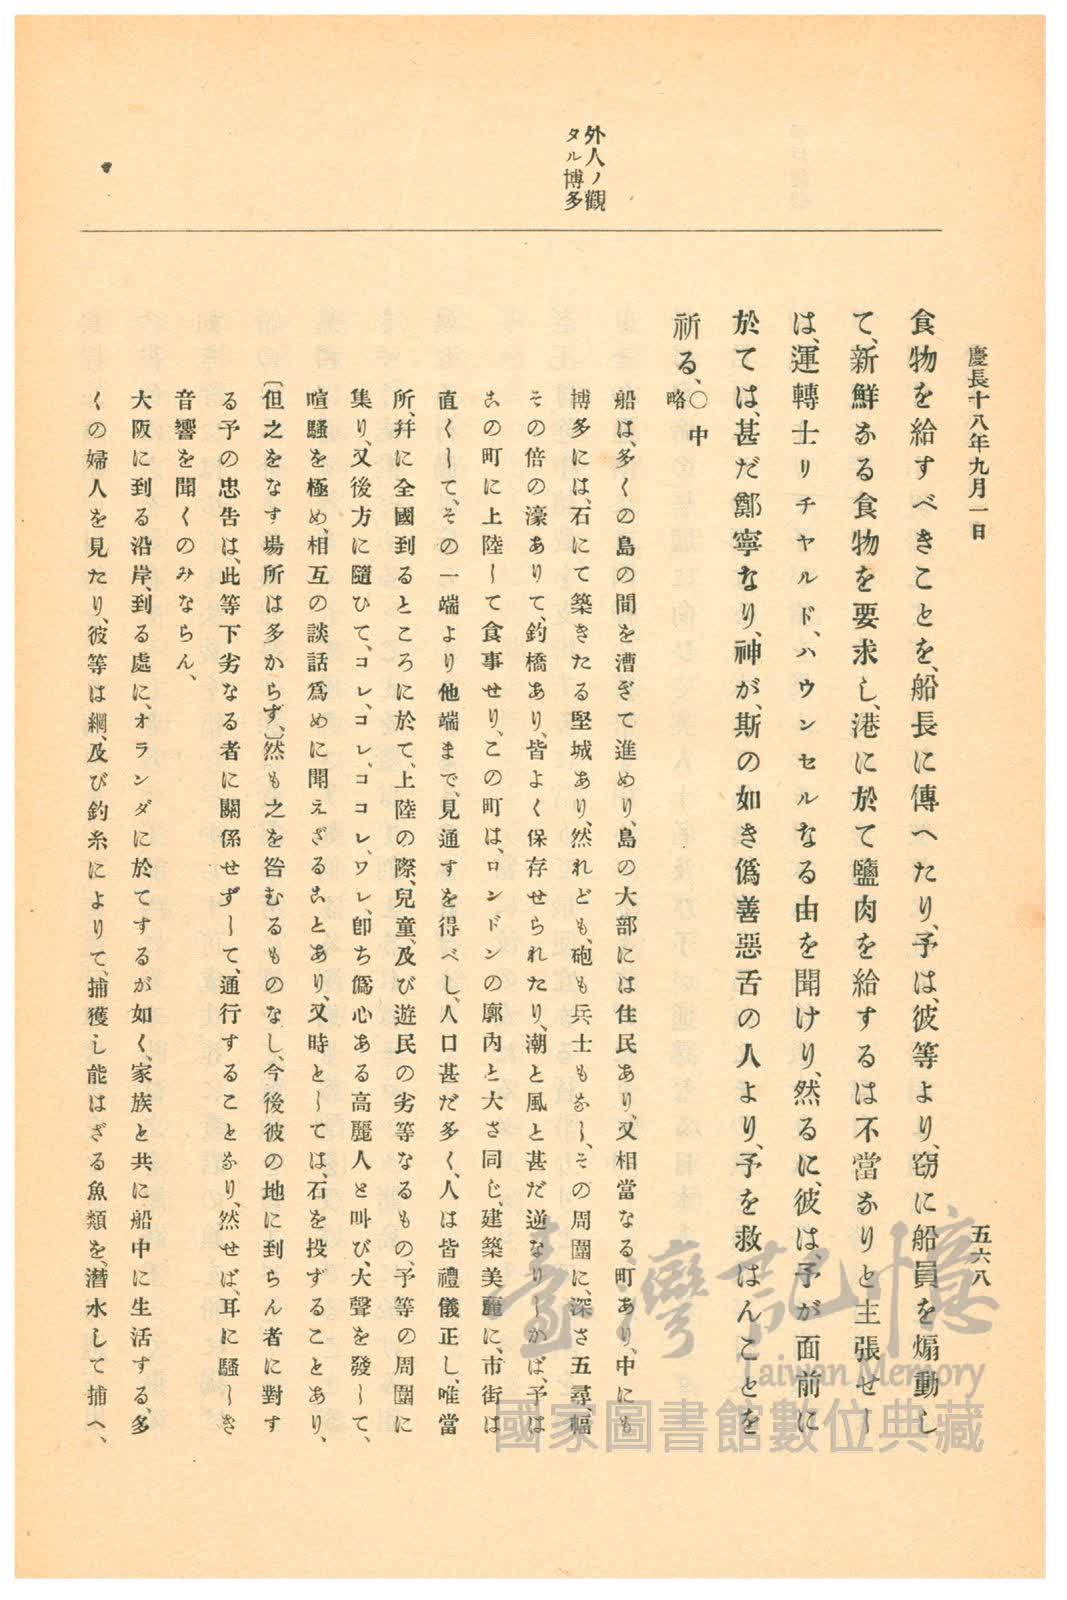 慶長十八年九月一日
五六八
外人ノ觀
タル博多
食物を給すべきことを、船長に傳へたり、予は、彼等より、窃に船員を煽動し
て、新鮮なる食物を要求し、港に於て鹽肉を給するは不當なりと主張せし
は、運轉士リチヤルド、ハウンセルなる由を聞けり、然るに、彼は、予が面前に
於ては、甚だ鄭寧なり、神が、斯の如き僞善惡舌の人より、予を救はんことを
祈る、○中略
船は、多くの島の間を漕ぎて進めり、島の大部には住民あり、又相當なる町あり、中にも
博多には、石にて築きたる堅城あり、然れども、砲も兵士もなし、その周圍に、深さ五尋、幅
その倍の濠ありて、釣橋あり、皆よく保存せられたり、潮と風と甚だ逆なりしかば、予は
この町に上陸して食事せり、この町は、ロンドンの廓内と大さ同じ、建築美麗に、市街は
直くして、その一端より他端まで、見通すを得べし、人口甚だ多く、人は皆禮儀正し、唯當
所、幷に全國到るところに於て、上陸の際、兒童、及び遊民の劣等なるもの、予等の周圍に
集り、又後方に隨ひて、コレ、コレ、ココレ、ワレ、卽ち僞心ある高麗人と叫び、大聲を發して、
喧騷を極め、相互の談話爲めに聞えざることあり、又時としては、石を投ずることあり、
〔但之をなす場所は多からず、〕然も之を咎むるものなし、今後彼の地に到らん者に對す
る予の忠告は、此等下劣なる者に關係せずして、通行することなり、然せば、耳に騷しき
音響を聞くのみならん、
大阪に到る沿岸、到る處に、オランダに於てするが如く、家族と共に船中に生活する、多
くの婦人を見たり、彼等は綱、及び釣糸によりて、捕獲し能はざる魚類を、潛水して捕へ、
臺灣記憶
Taiwan Memory
國家圖書館數位典藏